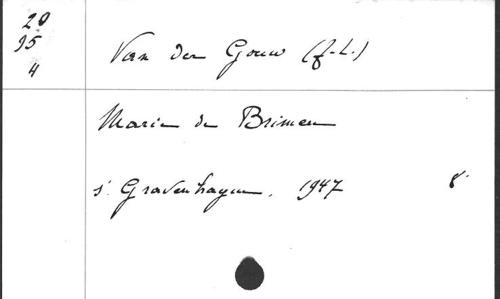 20
95
4
Van der Gouw (J.L.)
Marie de Brimeu
s' Gravenhagen. 1947 8°